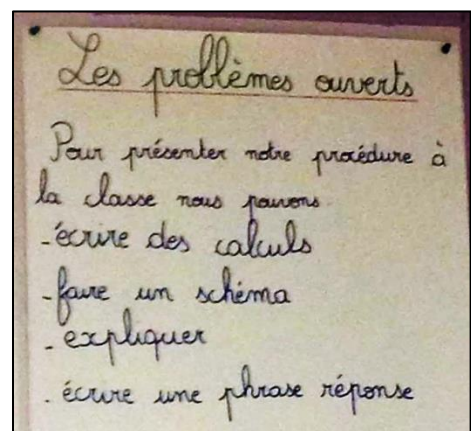 Les problèmes ouverts
Pour présenter notre procédure à
la classe nous pouvons
- écrire des calculs
- faire un schéma
- expliquer
- écrire une phrase réponse